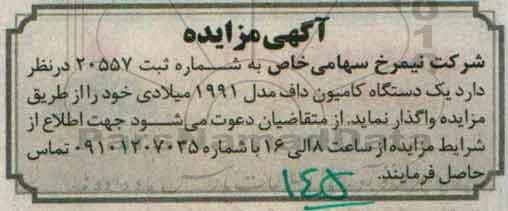 آگهی مزایده
شرکت نیمرخ سهامی خاص به شماره ثبت ۲۰۵۵۷ درنظر
دارد یک دستگاه کامیون داف مدل ۱۹۹۱ میلادی خود را از طریق
مزایده واگذار نماید. از متقاضیان دعوت می‌شود جهت اطلاع از
شرایط مزایده از ساعت ۸ الی ۱۶ با شماره ۰۹۱۰۱۲۰۷۰۳۵ تماس
حاصل فرمایند.
۱۴۵